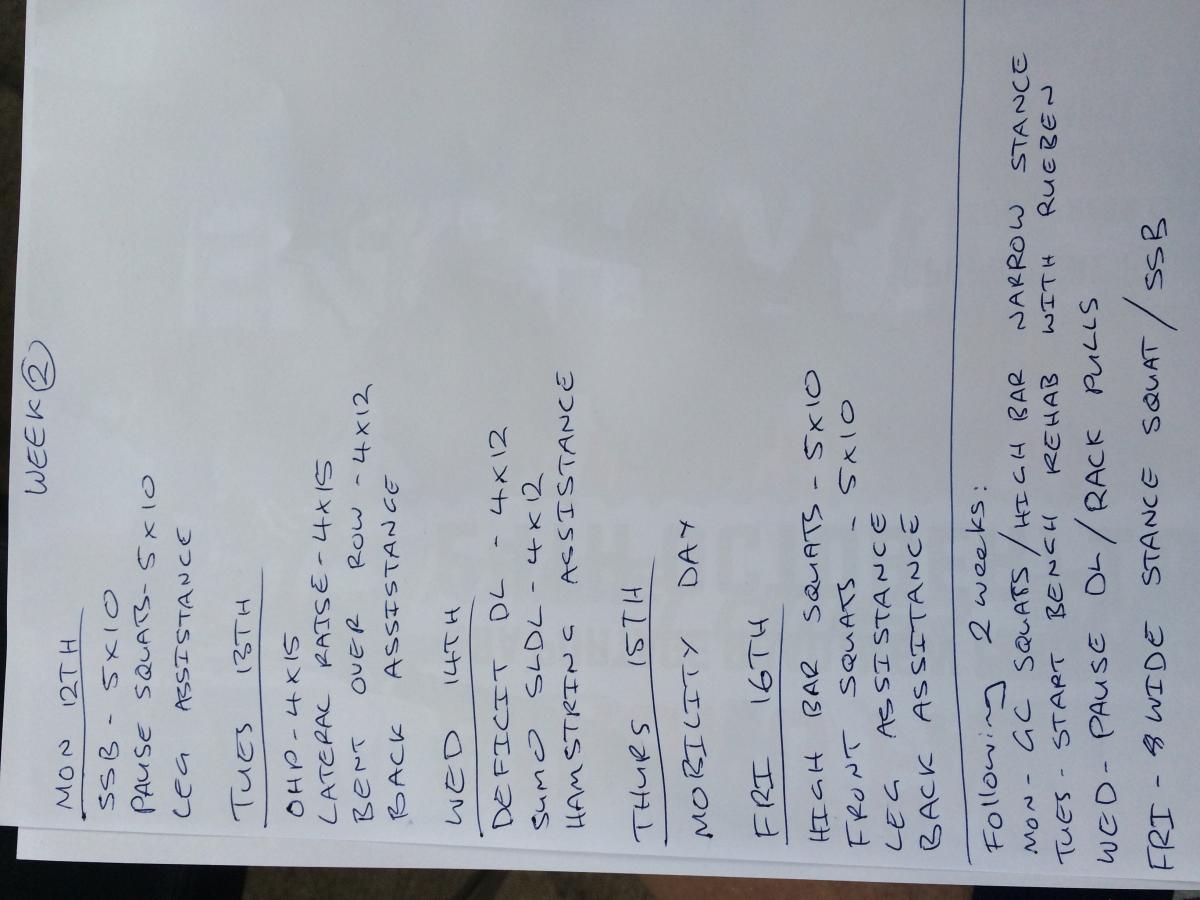 WEEK 2
MON 12TH
SSB - 5X10
PAUSE SQUATS - 5X10
LEG ASSISTANCE
TUES 13TH
OHP - 4X15
LATERAL RAISE - 4X15
BENT OVER ROW - 4X12
BACK ASSISTANCE
WED 14TH
DEFICIT DL - 4X12
SUMO SLDL - 4X12
HAMSTRING ASSISTANCE
THURS 15TH
MOBILITY DAY
FRI 16TH
HIGH BAR SQUATS - 5X10
FRONT SQUATS - 5X10
LEG ASSISTANCE
BACK ASSITANCE
Following 2 weeks:
MON - GC SQUATS/HIGH BAR NARROW STANCE
TUES - START BENCH REHAB WITH RUEBEN
WED - PAUSE DL/RACK PULLS
FRI - WIDE STANCE SQUAT/SSB